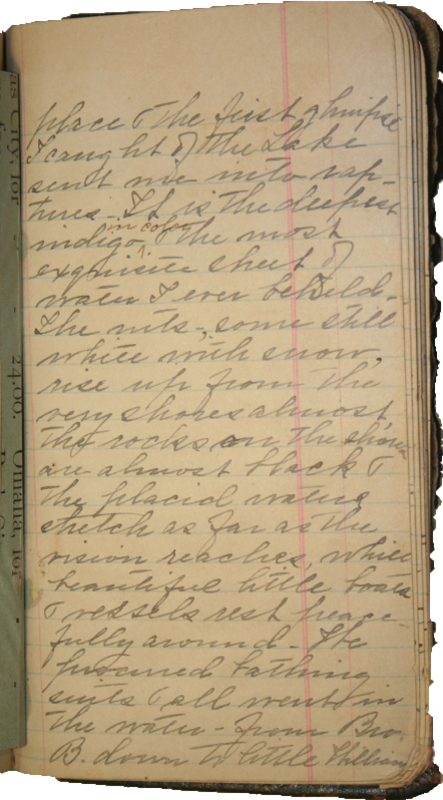 place & the first glimpse
I caught of the Lake
sent me into rap-
tures. It is the deepest
indigo in color & the most
exquisite sheet of
water I ever beheld.
The mts., some still
white with snow,
rise up from the
very shores almost
the rocks on the shores
are almost black &
the placid waters
stretch as far as the
vision reaches, while
beautiful little boats
& vessels rest peace-
fully around. We
procured bathing
suits & all went in
the water - from Bro.
B. down to little William
as City, for
24.00. Omaha, for